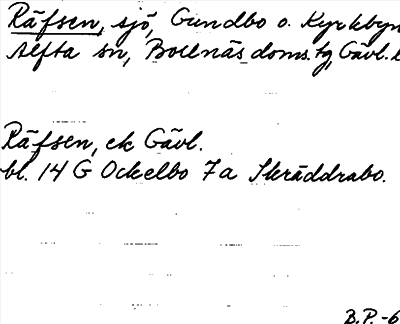 Räfsen, sjö, Gundbo o. Kyrkbyn
Alfta sn, Bollnäs doms. tg, Gävl. l
Räfsen, ek Gävl.
bl. 14 G Ockelbo 7a Skräddrabo.
B.P. -6